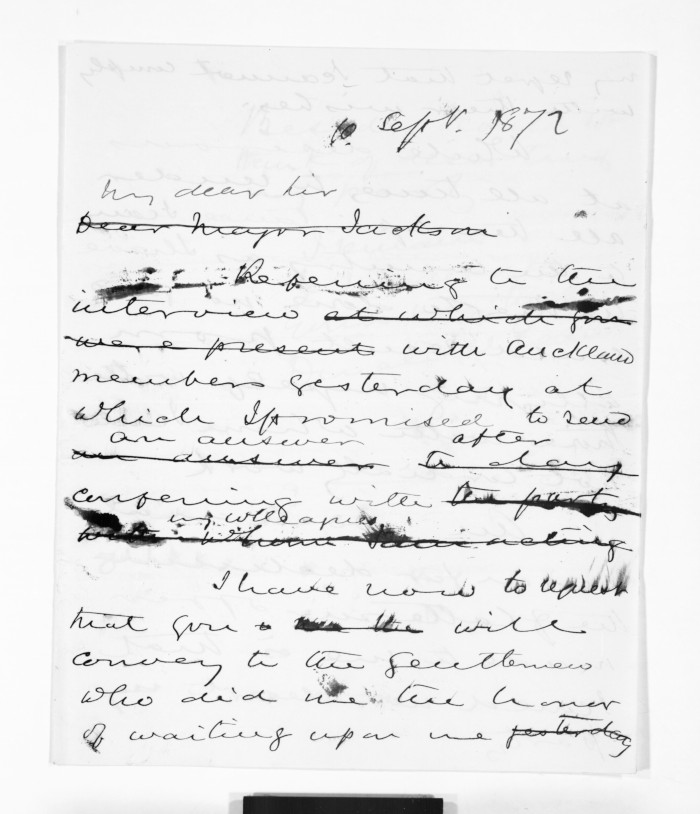 10 Sept. 1872
My dear Sir
Dear Major Jackson
Referring to the
interview at which you
were present with Auckland
members yesterday at
which I promised to send
an answer after
an answer to day
conferring with the party
my colleagues
with whom I am acting
I have now to request
that you will
convey to the Gentlemen
who did me the honor
of waiting upon me yesterday